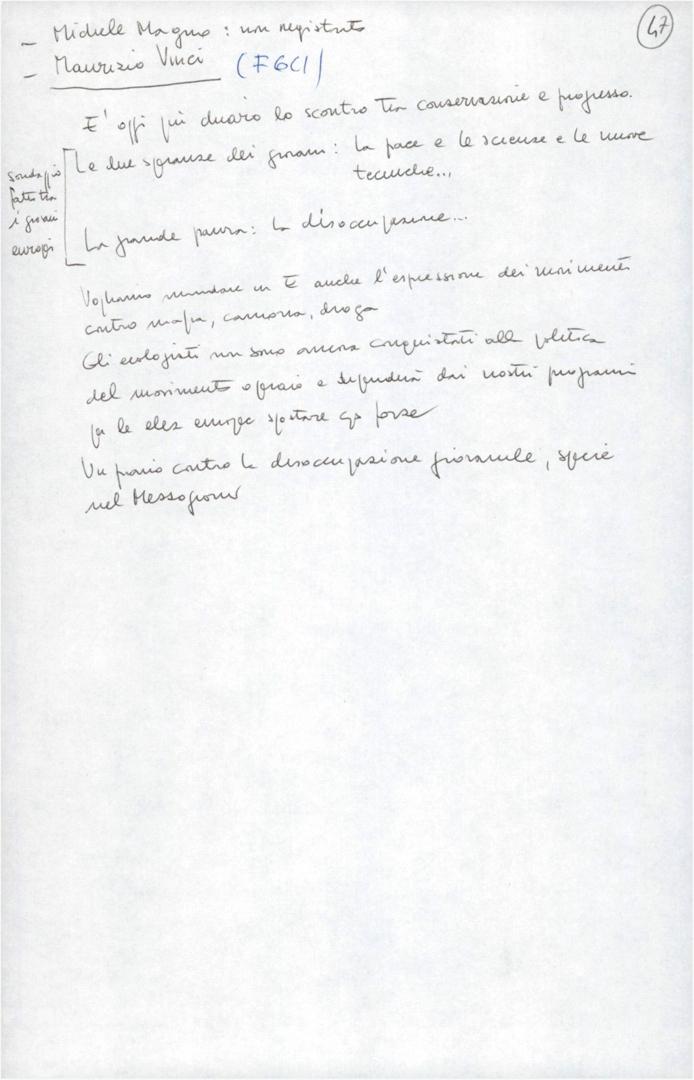 47
- Michele Magno : non registrato
- Maurizio Vinci (FGCI)
E' oggi più chiaro lo scontro tra conservazione e progresso.
sondaggio
fatto tra
i giovani
europei
Le due speranze dei giovani : la pace e le scienze e le nuove
tecniche...
La grande paura : la disoccupazione...
Vogliamo mandare in E anche l'espressione dei movimenti
contro mafia, camorra, droga
Gli ecologisti non sono ancora conquistati alla politica
del movimento operaio e dipenderà dai nostri programmi
per le elez europee spostare qs forze
Un piano contro la disoccupazione giovanile, specie
nel Mezzogiorno